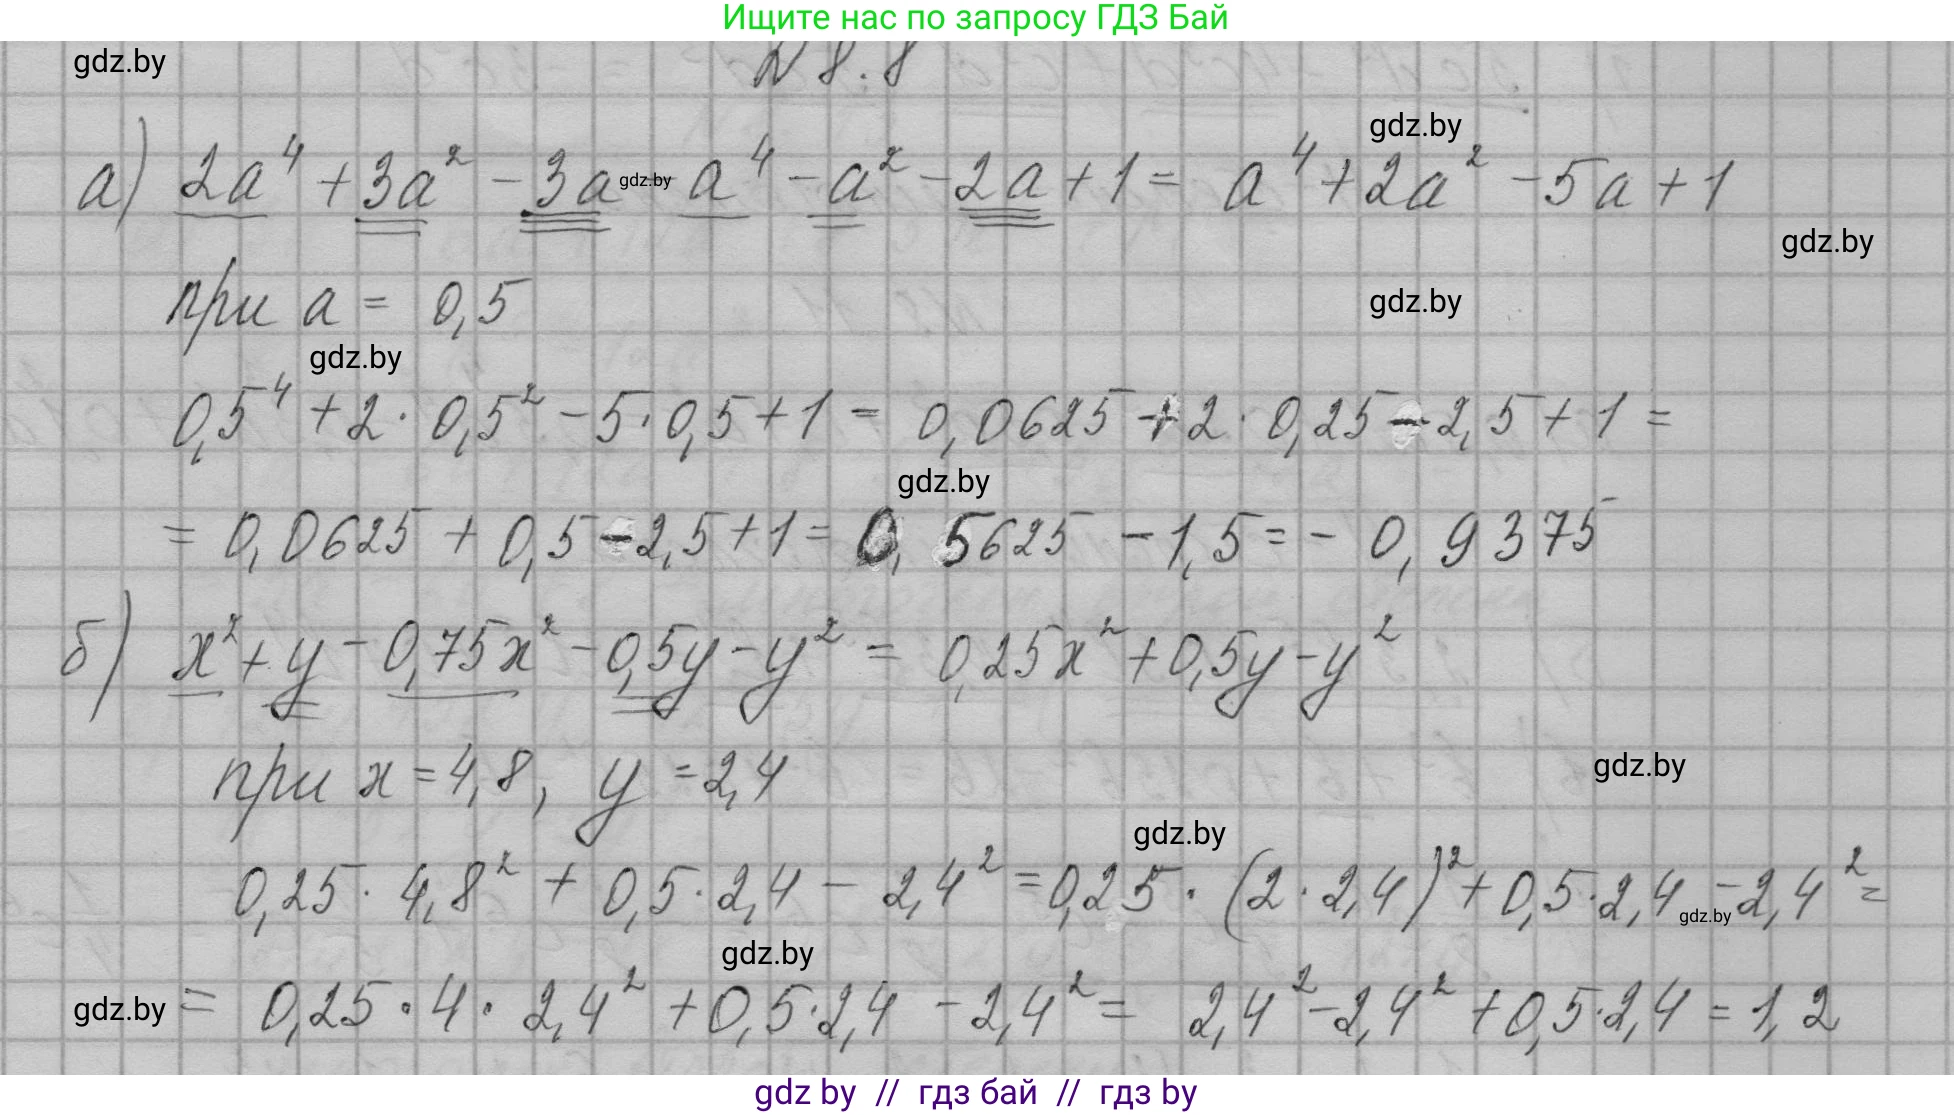 Ищите нас по запросу ГДЗ Бай
gdz.by
N 8.8
gdz.by
а) 2a⁴ + 3a² - 3a - a⁴ - a² - 2a + 1 = a⁴ + 2a² - 5a + 1
gdz.by
gdz.by
при a = 0,5
gdz.by
gdz.by
0,5⁴ + 2 · 0,5² - 5 · 0,5 + 1 = 0,0625 + 2 · 0,25 - 2,5 + 1 =
gdz.by
= 0,0625 + 0,5 - 2,5 + 1 = 0,5625 - 1,5 = - 0,9375
б) x² + y - 0,75x² - 0,5y - y² = 0,25x² + 0,5y - y²
при x = 4,8, y = 2,4
gdz.by
gdz.by
0,25 · 4,8² + 0,5 · 2,4 - 2,4² = 0,25 · (2 · 2,4)² + 0,5 · 2,4 - 2,4² =
gdz.by
gdz.by
gdz.by
= 0,25 · 4 · 2,4² + 0,5 · 2,4 - 2,4² = 2,4² - 2,4² + 0,5 · 2,4 = 1,2
gdz by // гдз бай // гдз by